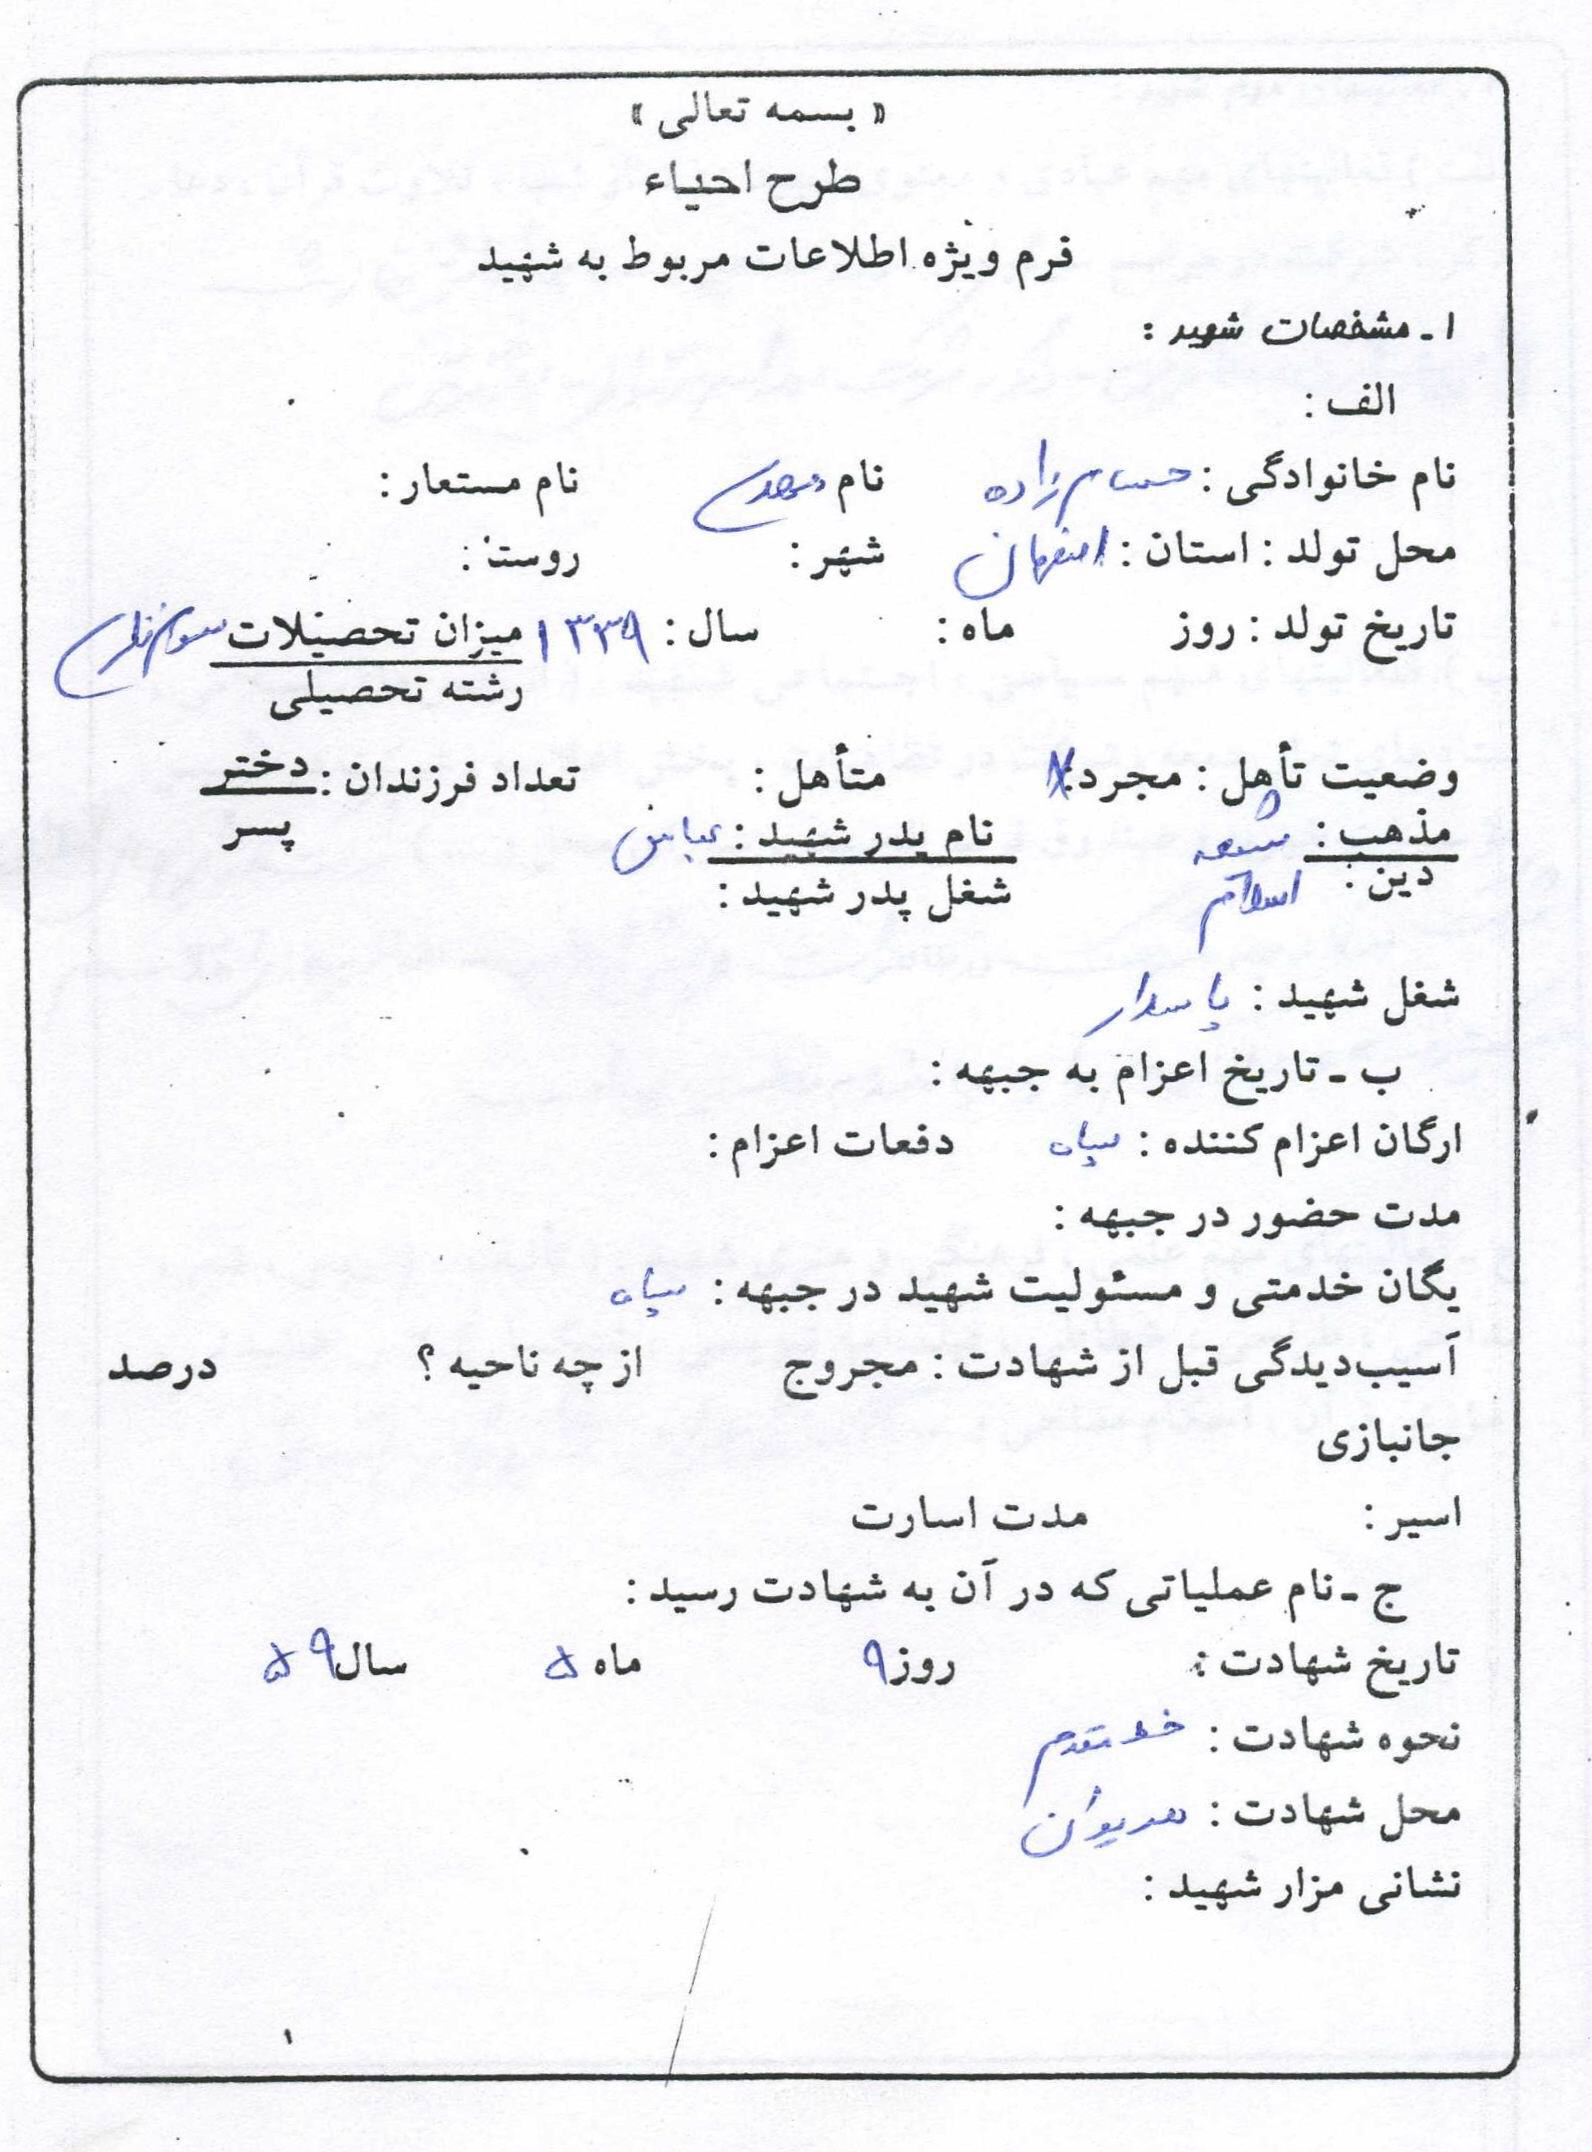 « بسمه تعالی »
طرح احیاء
فرم ویژه اطلاعات مربوط به شهید
۱ ـ مشخصات شهید :
الف :
نام خانوادگی : حسام زاده نام مهدی نام مستعار :
محل تولد : استان : اصفهان شهر : روستا :
تاریخ تولد : روز ماه : سال : ۱۳۳۹ میزان تحصیلات سوم
رشته تحصیلی
وضعیت تأهل : مجرد : X متأهل : تعداد فرزندان : دختر
پسر
مذهب : شیعه نام پدر شهید : عباس
دین : اسلام شغل پدر شهید :
شغل شهید : پاسدار
ب ـ تاریخ اعزام به جبهه :
ارگان اعزام کننده : سپاه دفعات اعزام :
مدت حضور در جبهه :
یگان خدمتی و مسئولیت شهید در جبهه : سپاه
آسیب‌دیدگی قبل از شهادت : مجروح از چه ناحیه ؟ درصد
جانبازی
اسیر : مدت اسارت
ج ـ نام عملیاتی که در آن به شهادت رسید :
تاریخ شهادت : روز ۹ ماه ۵ سال ۵۹
نحوه شهادت : خط مقدم
محل شهادت : مریوان
نشانی مزار شهید :
۱